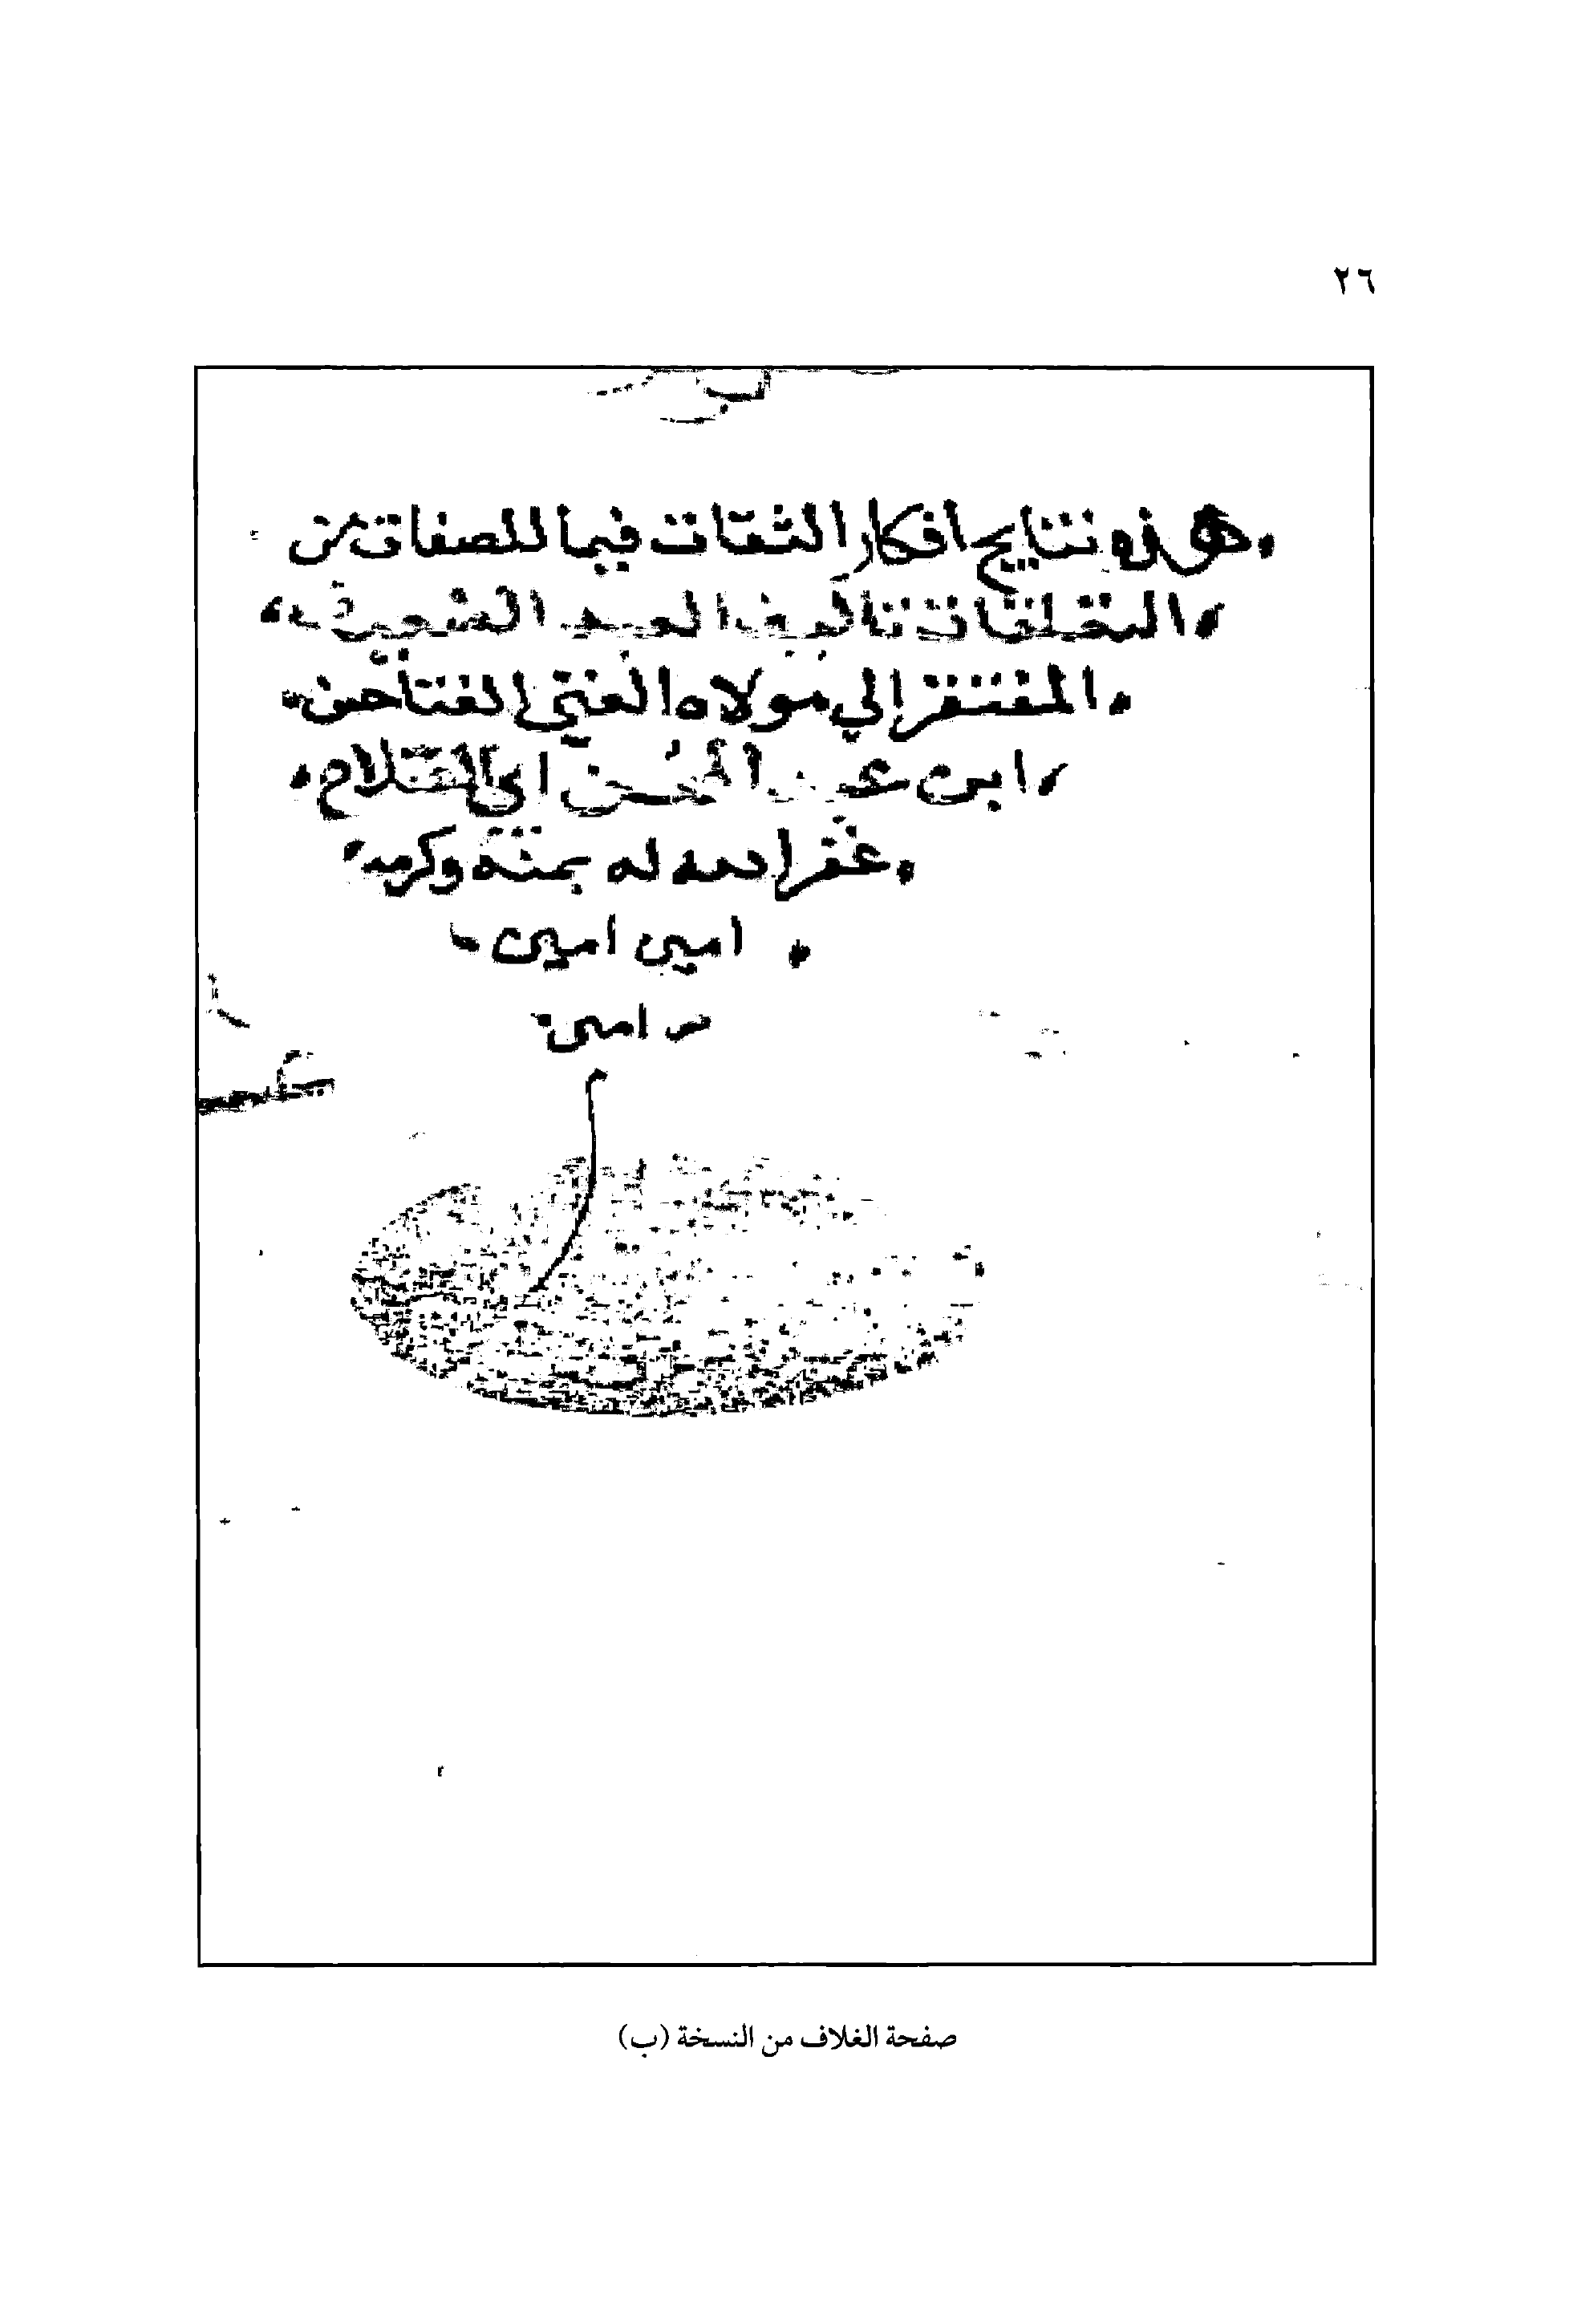 ٢٦
هذه نتايج افكار الثقات فيما للصفات من
التعلقات تاليف العبد الضعيف
المفتقر الي مولاه الغني الفتاح حسن
ابن عبد المحسن ابي
غفر الله له بمنه وكرمه
امين امين
امين
صفحة الغلاف من النسخة (ب)